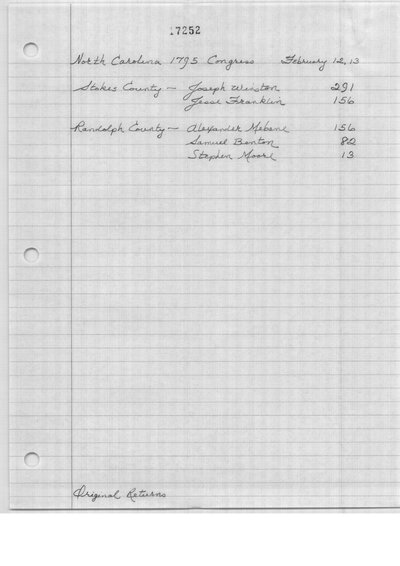 17252
North Carolina 1795 Congress February 12, 13
Stokes County — Joseph Winston 291
Jesse Franklin 156
Randolph County — Alexander Mebane 156
Samuel Benton 82
Stephen Moore 13
Original Returns